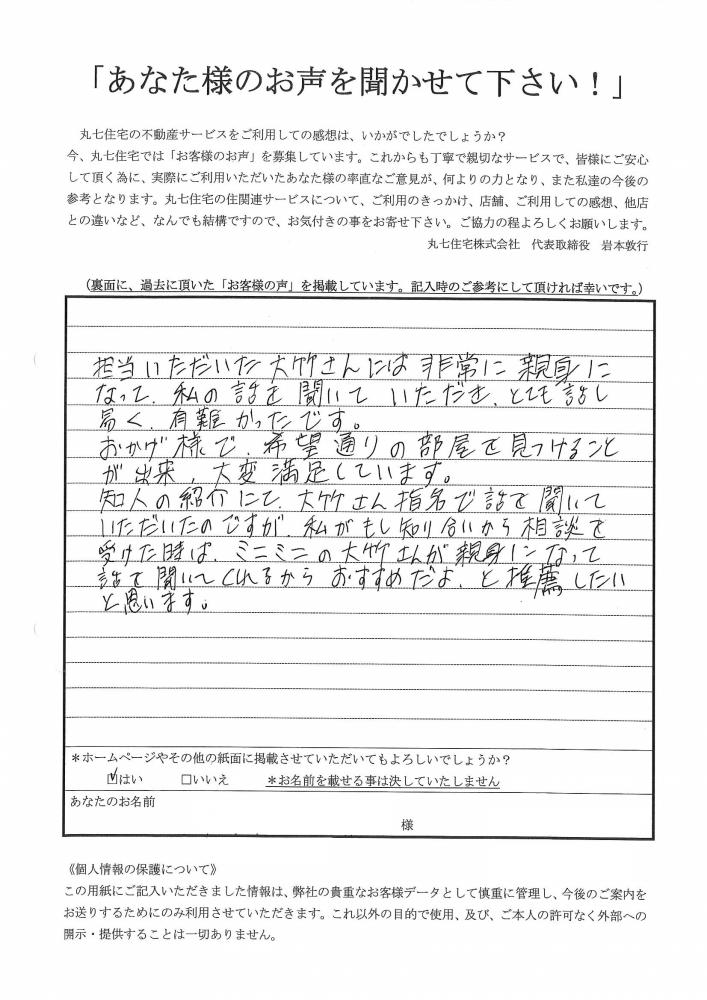 「あなた様のお声を聞かせて下さい！」
丸七住宅の不動産サービスをご利用しての感想は、いかがでしたでしょうか？
今、丸七住宅では「お客様のお声」を募集しています。これからも丁寧で親切なサービスで、皆様にご安心
して頂く為に、実際にご利用いただいたあなた様の率直なご意見が、何よりの力となり、また私達の今後の
参考となります。丸七住宅の住関連サービスについて、ご利用のきっかけ、店舗、ご利用しての感想、他店
との違いなど、なんでも結構ですので、お気付きの事をお寄せ下さい。ご協力の程よろしくお願いします。
丸七住宅株式会社　代表取締役　岩本敦行
（裏面に、過去に頂いた「お客様の声」を掲載しています。記入時のご参考にして頂ければ幸いです。）
担当いただいた大竹さんには非常に親身に
なって、私の話を聞いていただき、とても話し
易く、有難かったです。
おかげ様で、希望通りの部屋を見つけること
が出来、大変満足しています。
知人の紹介にて、大竹さん指名で話を聞いて
いただいたのですが、私がもし知り合いから相談を
受けた時は、ミニミニの大竹さんが親身になって
話を聞いてくれるからおすすめだよ、と推薦したい
と思います。
＊ホームページやその他の紙面に掲載させていただいてもよろしいでしょうか？
☑はい　□いいえ　＊お名前を載せる事は決していたしません
あなたのお名前
様
《個人情報の保護について》
この用紙にご記入いただきました情報は、弊社の貴重なお客様データとして慎重に管理し、今後のご案内を
お送りするためにのみ利用させていただきます。これ以外の目的で使用、及び、ご本人の許可なく外部への
開示・提供することは一切ありません。